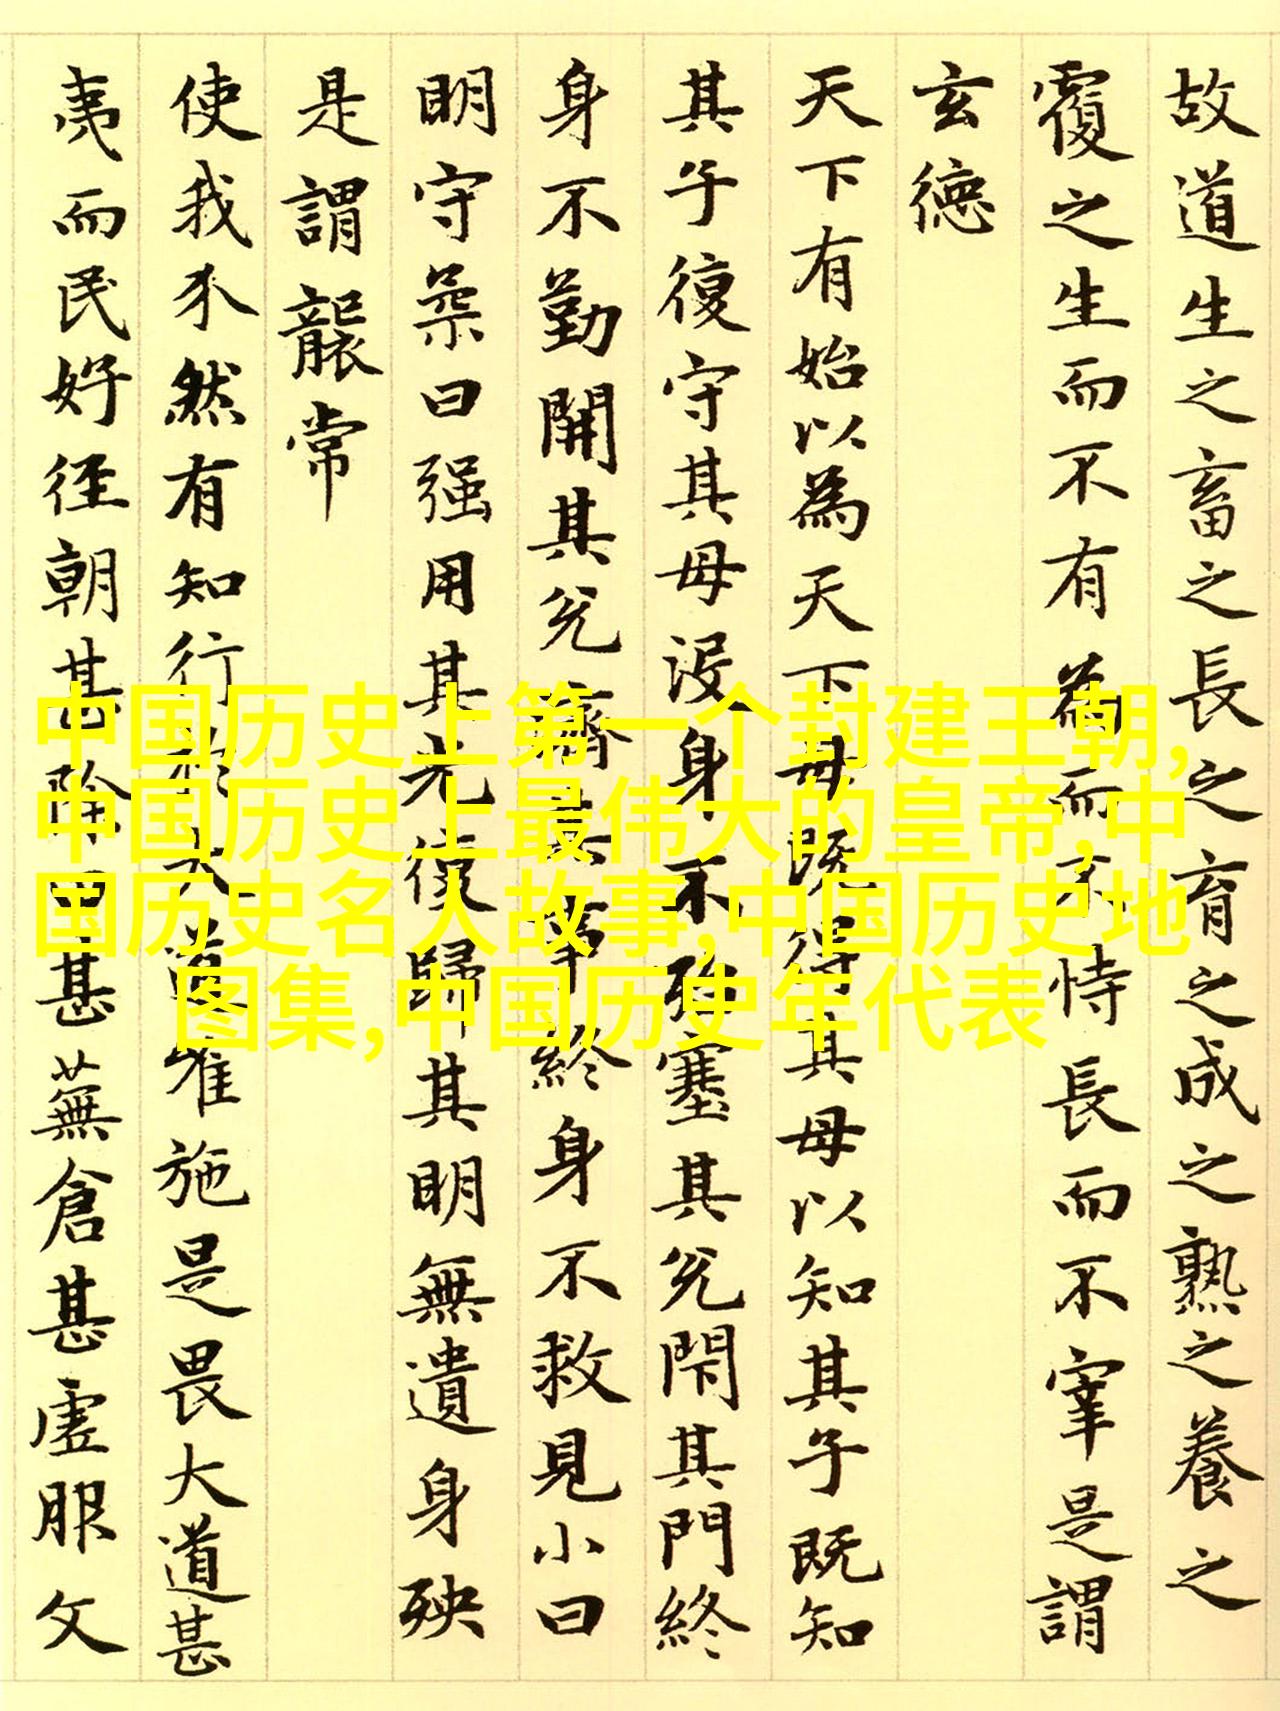 故道生之畜之長之育之成之熟之養之
覆之生而不有為而不恃長而不宰是謂
玄德
天下有始以為天下母既得其母以知其子既知
其子復守其母沒身不殆塞其兌閇其門終
身不勤開其兌濟其事終身不救見小曰
明守柔曰强用其光復歸其明無遺身殃
是謂襲常
使我介然有知行於大道唯施是畏大道甚
夷而民好徑朝甚除田甚蕪倉甚虛服文
中国历史上第一个封建王朝,
中国历史上最伟大的皇帝,中
国历史名人故事,中国历史地
图集,中国历史年代表